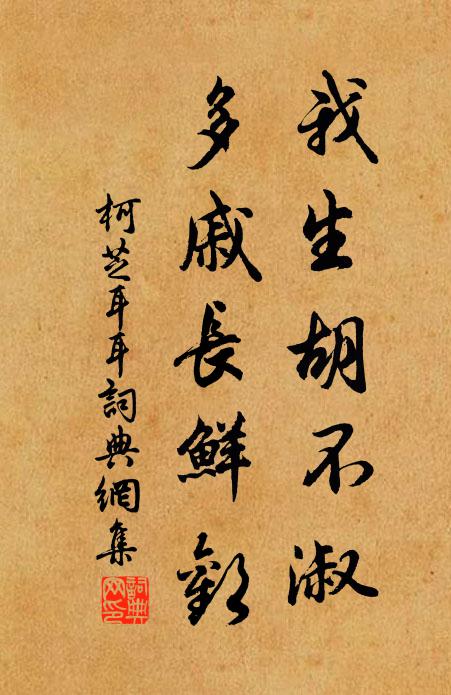 我生胡不淑
多戚長鮮歡
柯芝耳耳詞典網集
詞典網印